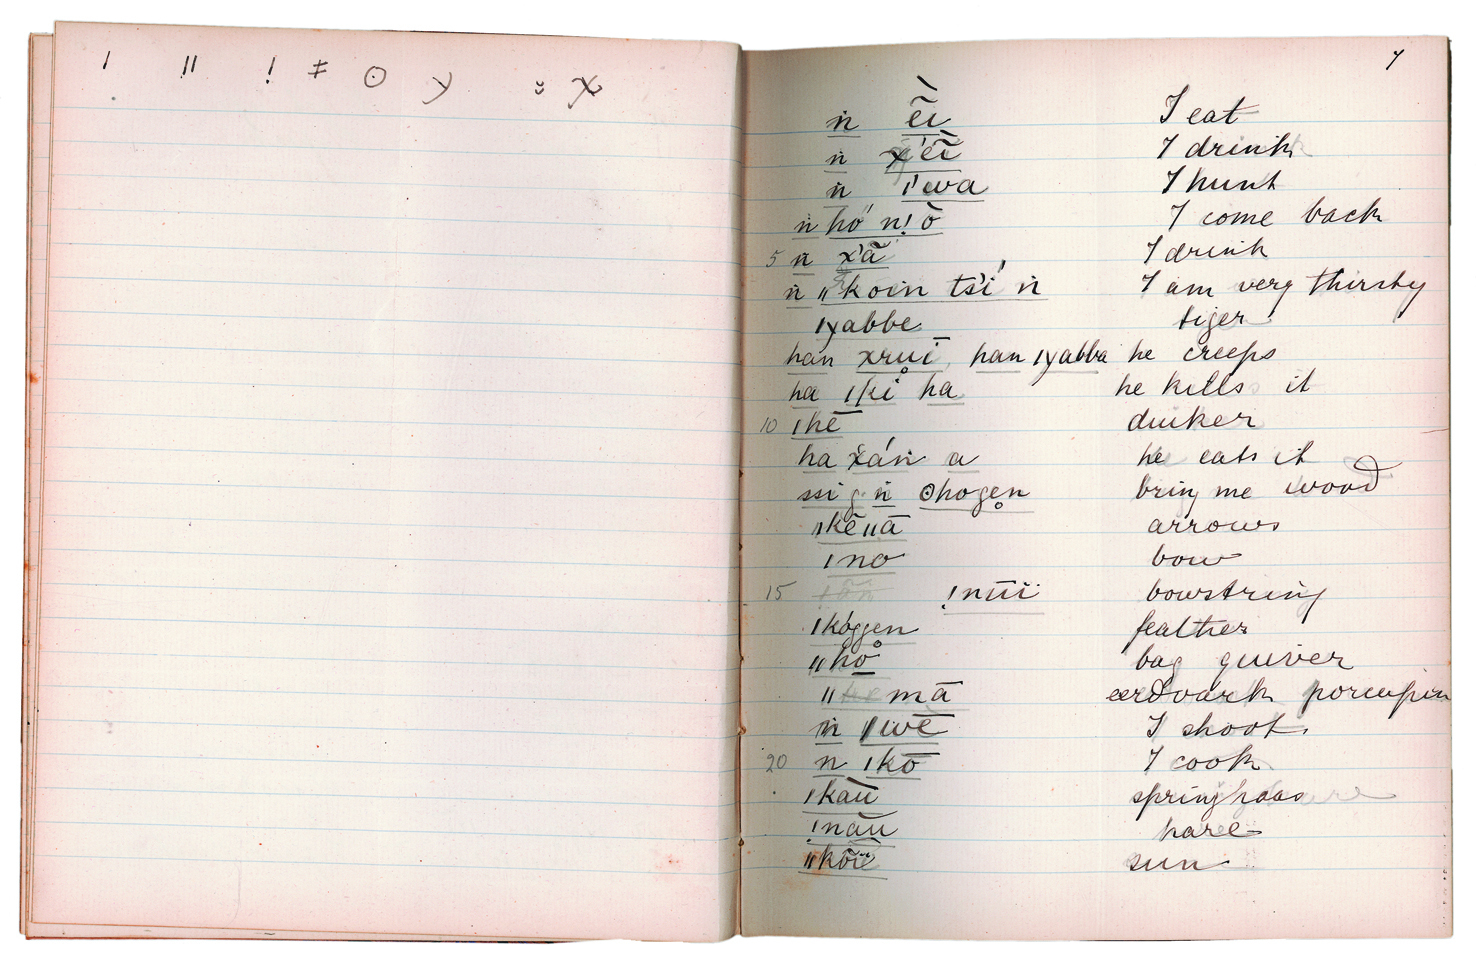 ǀ ǁ ! ǂ ʘ y ᵕ̈ x
7
ṅ ẽi I eat
ṅ x'ẽĩ I drink
ṅ ǀ'wa I hunt
ṅ hó' n!ò I come back
5 ṅ x'ã I drink
ṅ ǁkoin tsí ṅ I am very thirsty
ǀyabbe tiger
han xru̥ī, han ǀyabba he creeps
ha ǀki ha he kills it
10 ǀhē duiker
ha x̌áṅ a he eats it
ssi g ṅ ʘhoge̥n bring me wood
ǀkēǁā arrows
ǀno bow
15 !nūï bowstring
ǀkóggen feather
ǁho̊ bag quiver
ǁ mā eerdvark porcupin
ṅ ǀwē I shoot.
20 ṅ ǀkō I cook
ǀkāū springhaas
!nāū hare
ǁkōïē sun